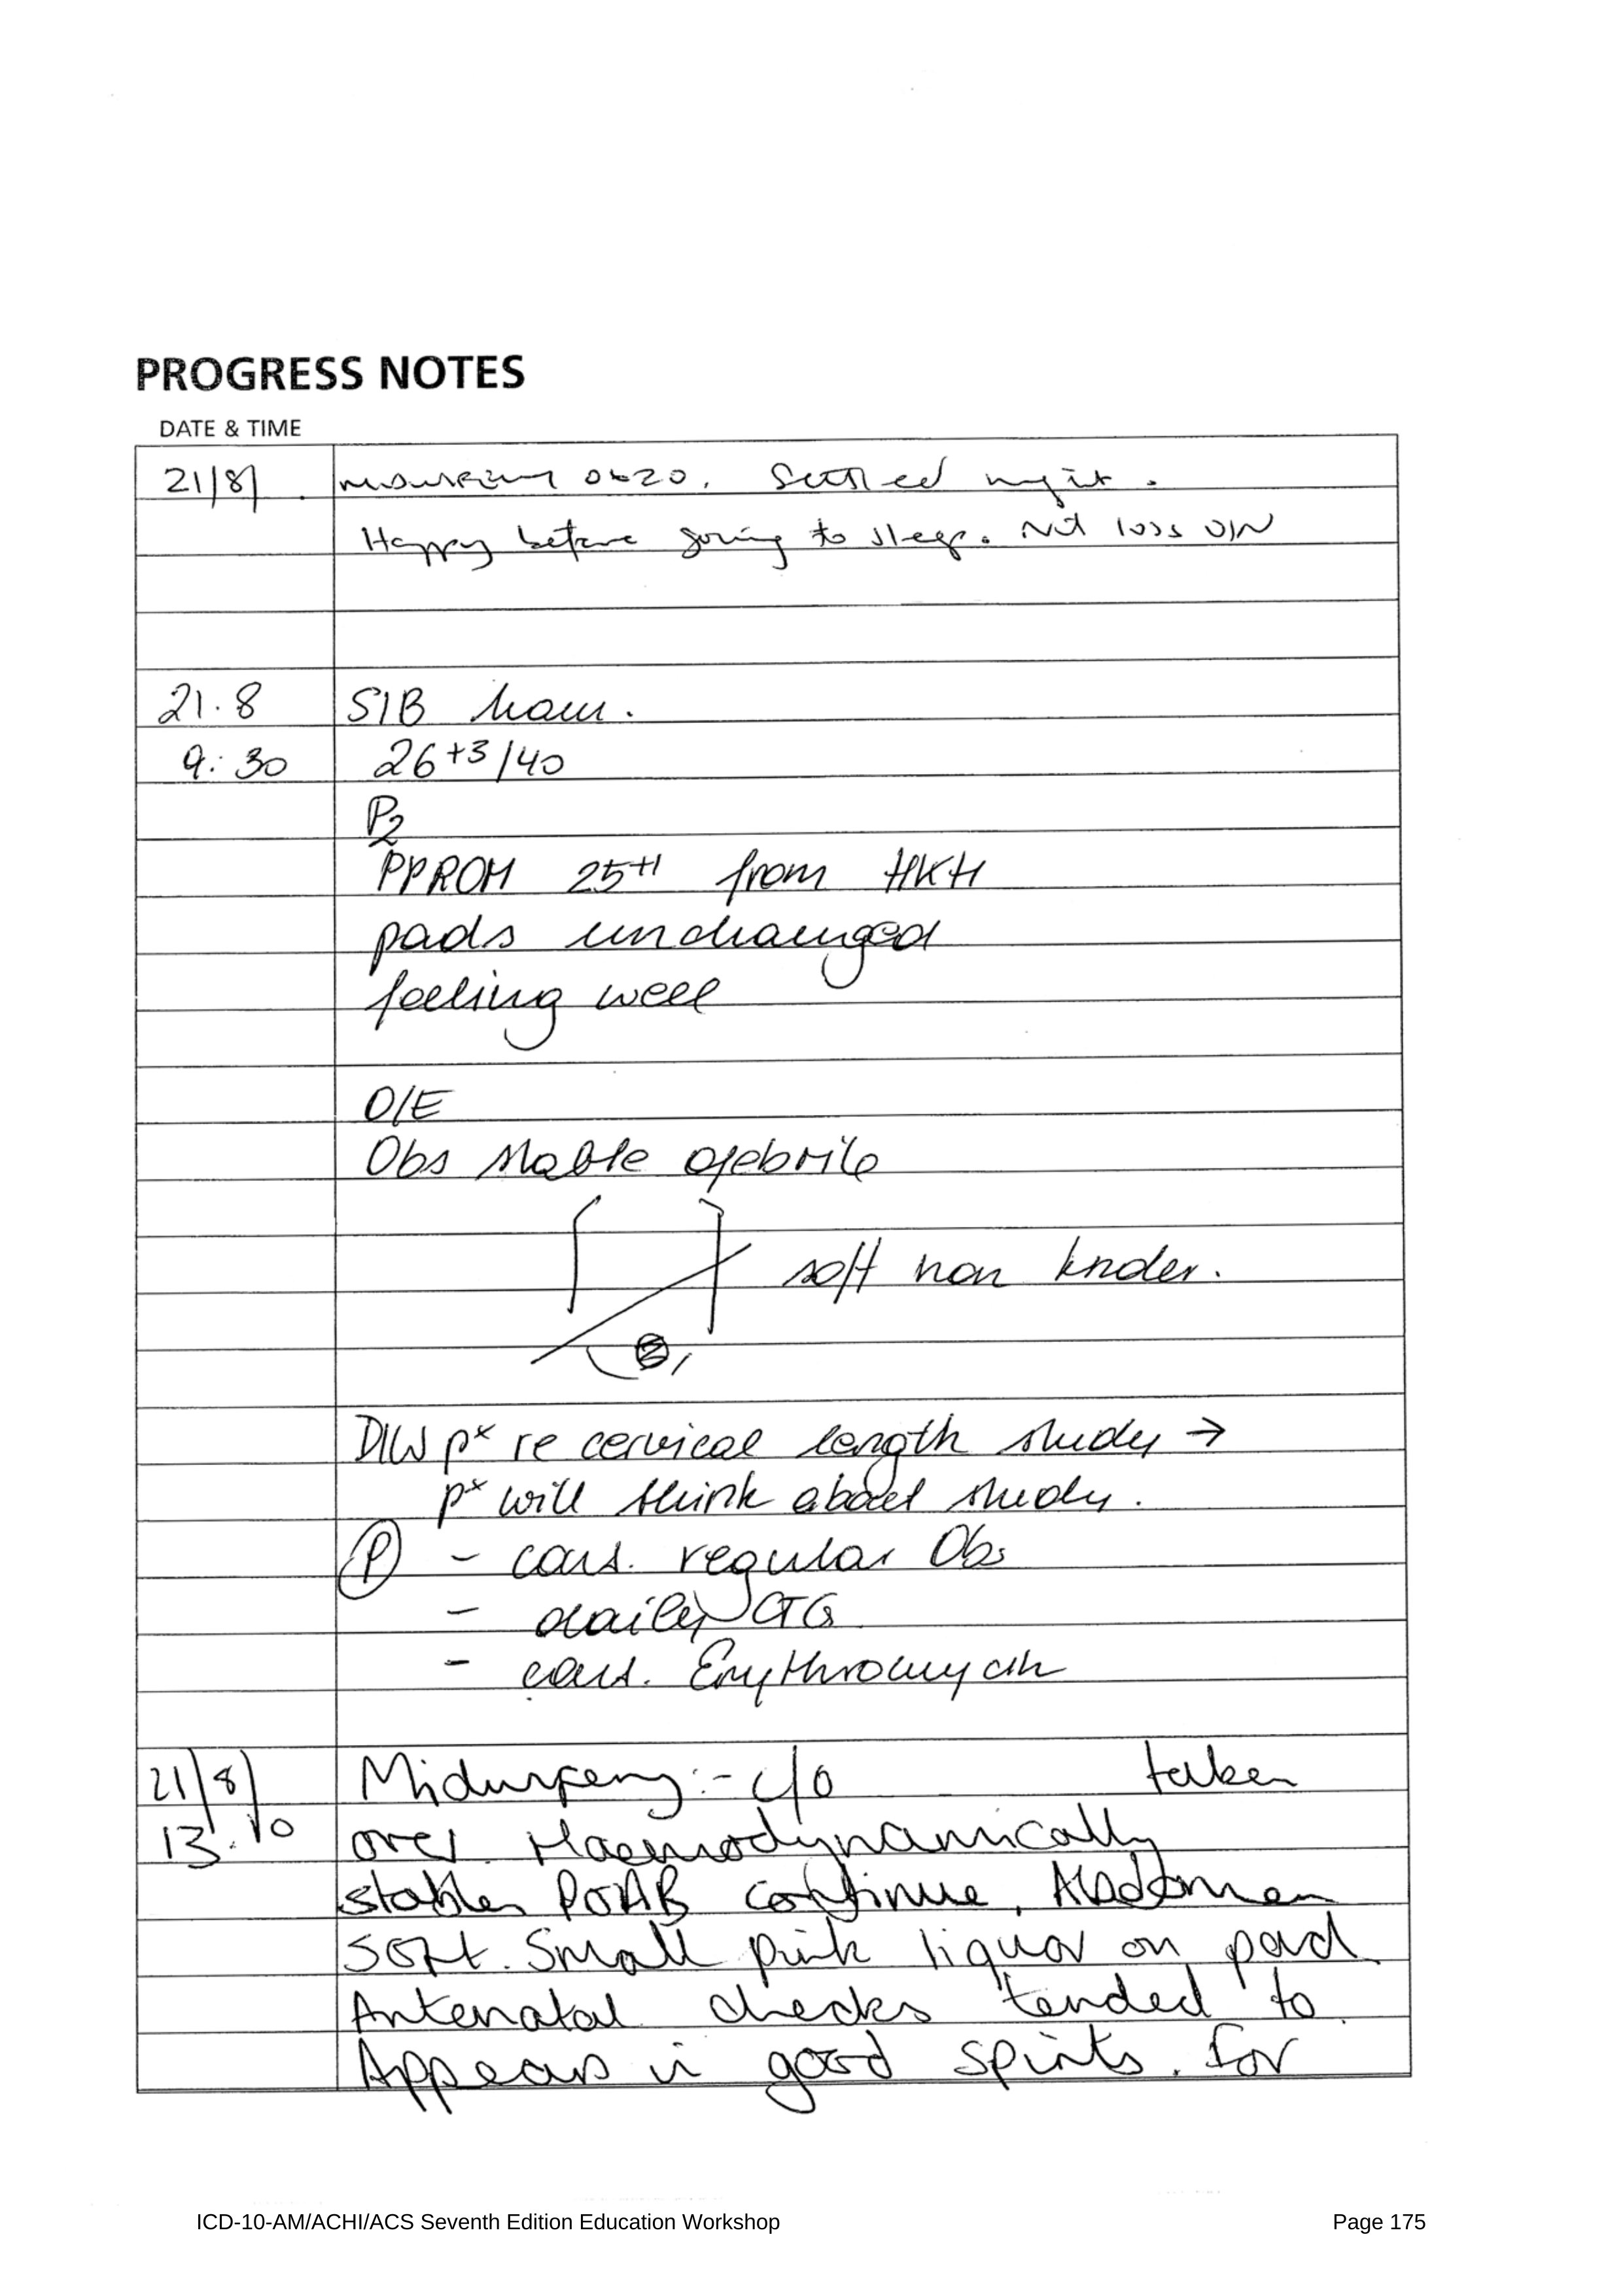 PROGRESS NOTES
DATE & TIME
21/8/ 0620. Settled night.
Happy before going to sleep. Nil loss O/N
21.8 S/B
9:30 26+3/40
P2
PPROM 25+1 from HKH
pads unchanged
feeling well
O/E
Obs stable afebrile
soft non tender.
D/W px re cervical length study →
px will think about study.
(P) - cont. regular Obs
- daily CTG
- cont. Erythromycin
21/8/ Midwifery:- c/o taken
13.10 over. Haemodynamically
stable, POAB continue, Abdomen
soft. Small pink liquor on pad
Antenatal checks tended to.
Appears in good spirits. for
ICD-10-AM/ACHI/ACS Seventh Edition Education Workshop Page 175